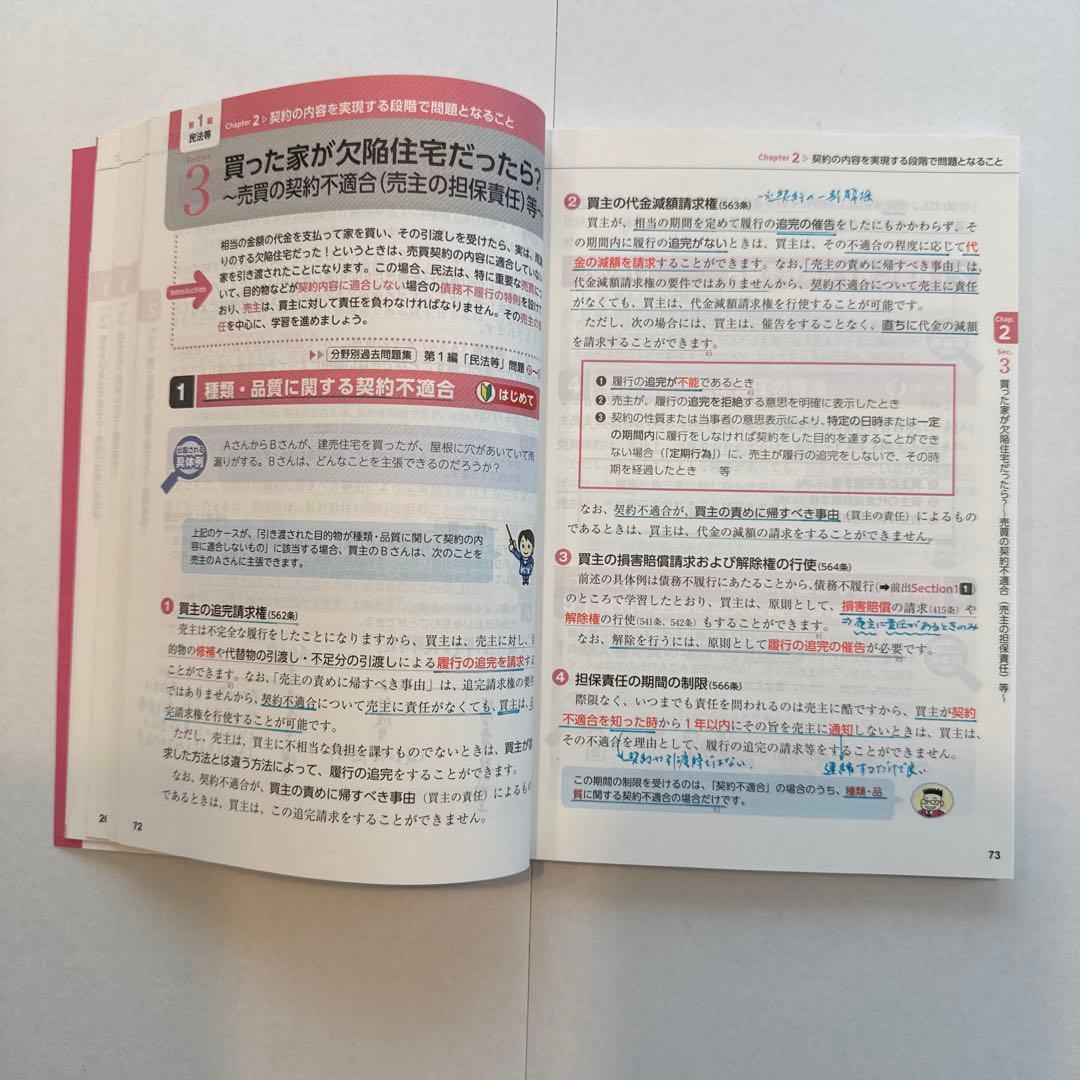 第1編
民法等
Chapter 2 ▷ 契約の内容を実現する段階で問題となること
Section
3
買った家が欠陥住宅だったら?
〜売買の契約不適合(売主の担保責任)等〜
Introduction
相当の金額の代金を支払って家を買い、その引渡しを受けたら、実は、雨漏
りのする欠陥住宅だった!というときは、売買契約の内容に適合していない
家を引き渡されたことになります。この場合、民法は、特に重要な売買につ
いて、目的物などが契約内容に適合しない場合の債務不履行の特則を設けて
おり、売主は、買主に対して責任を負わなければなりません。その売主の責
任を中心に、学習を進めましょう。
▶▶ 分野別過去問題集 第1編「民法等」問題
1 種類・品質に関する契約不適合 はじめて
出題される
具体例
AさんからBさんが、建売住宅を買ったが、屋根に穴があいていて雨
漏りがする。Bさんは、どんなことを主張できるのだろうか?
上記のケースが、「引き渡された目的物が種類・品質に関して契約の内
容に適合しないもの」に該当する場合、買主のBさんは、次のことを
売主のAさんに主張できます。
KY
❶ 買主の追完請求権(562条)
売主は不完全な履行をしたことになりますから、買主は、売主に対し、目
的物の修補や代替物の引渡し・不足分の引渡しによる履行の追完を請求する
ことができます。なお、「売主の責めに帰すべき事由」は、追完請求権の要件
ではありませんから、契約不適合について売主に責任がなくても、買主は、追
完請求権を行使することが可能です。
ただし、売主は、買主に不相当な負担を課すものでないときは、買主が請
求した方法とは違う方法によって、履行の追完をすることができます。
なお、契約不適合が、買主の責めに帰すべき事由(買主の責任)によるもの
であるときは、買主は、この追完請求をすることができません。
72
Chapter 2 ▷ 契約の内容を実現する段階で問題となること
❷ 買主の代金減額請求権(563条)
買主が、相当の期間を定めて履行の追完の催告をしたにもかかわらず、そ
の期間内に履行の追完がないときは、買主は、その不適合の程度に応じて代
金の減額を請求することができます。なお、「売主の責めに帰すべき事由」は、
代金減額請求権の要件ではありませんから、契約不適合について売主に責任
がなくても、買主は、代金減額請求権を行使することが可能です。
ただし、次の場合には、買主は、催告をすることなく、直ちに代金の減額
を請求することができます。
❶ 履行の追完が不能であるとき
❷ 売主が、履行の追完を拒絶する意思を明確に表示したとき
❸ 契約の性質または当事者の意思表示により、特定の日時または一定
の期間内に履行をしなければ契約をした目的を達することができ
ない場合(「定期行為」)に、売主が履行の追完をしないで、その時
期を経過したとき 等
なお、契約不適合が、買主の責めに帰すべき事由(買主の責任)によるもの
であるときは、買主は、代金の減額の請求をすることができません。
❸ 買主の損害賠償請求および解除権の行使(564条)
前述の具体例は債務不履行にあたることから、債務不履行(➡前出Section1 1)
のところで学習したとおり、買主は、原則として、損害賠償の請求(415条)や
解除権の行使(541条、542条)もすることができます。
⇒売主に責任があるときのみ
なお、解除を行うには、原則として履行の追完の催告が必要です。
❹ 担保責任の期間の制限(566条)
際限なく、いつまでも責任を問われるのは売主に酷ですから、買主が契約
不適合を知った時から1年以内にその旨を売主に通知しないときは、買主は、
その不適合を理由として、履行の追完の請求等をすることができません。
契約や引渡時ではない.
連絡するだけで良い
この期間の制限を受けるのは、「契約不適合」の場合のうち、種類・品
質に関する契約不適合の場合だけです。
Chap.
2
Sec.
3
買った家が欠陥住宅だったら?〜売買の契約不適合(売主の担保責任)等〜
73